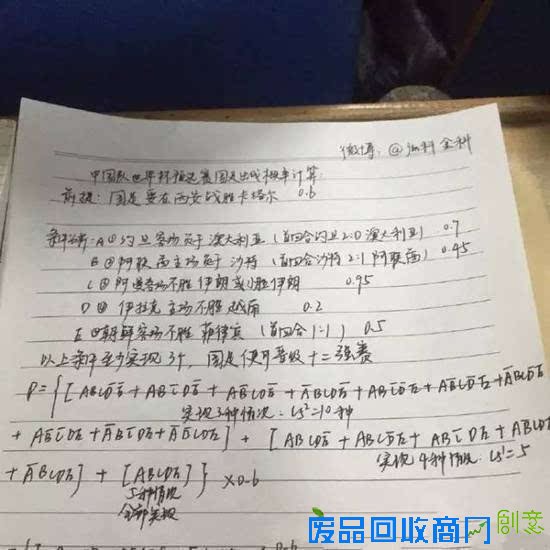 微博：@jim科 全科
中国队世界杯预选赛国足出线概率计算：
前提：国足要在西安战胜卡塔尔 0.6
条件分析：A① 约旦客场负于澳大利亚（首回合约旦2:0澳大利亚） 0.7
B② 阿联酋主场负于沙特（首回合沙特2:1阿联酋） 0.45
C③ 阿曼客场不胜伊朗 伊朗 0.95
D④ 伊拉克主场不胜越南 0.2
E⑤ 朝鲜客场不胜菲律宾（首回合1:1） 0.5
以上条件至少实现3个，国足便可晋级十二强赛
P={[ABCD̄Ē + ABC̄DĒ + AB̄CDĒ + ĀBCDĒ + ABC̄D̄E + AB̄CD̄E + ĀBCD̄E
实现3种情况：C5³=10种
+ AB̄C̄DE + ĀBC̄DE + ĀB̄CDE] + [ABCDĒ + ABCD̄E + ABC̄DE + AB̄CDE
实现4种情况：C5⁴=5
+ ĀBCDE] + [ABCDE]} ×0.6
5种情况
全部实现
×0.6
废品回收商网
创意